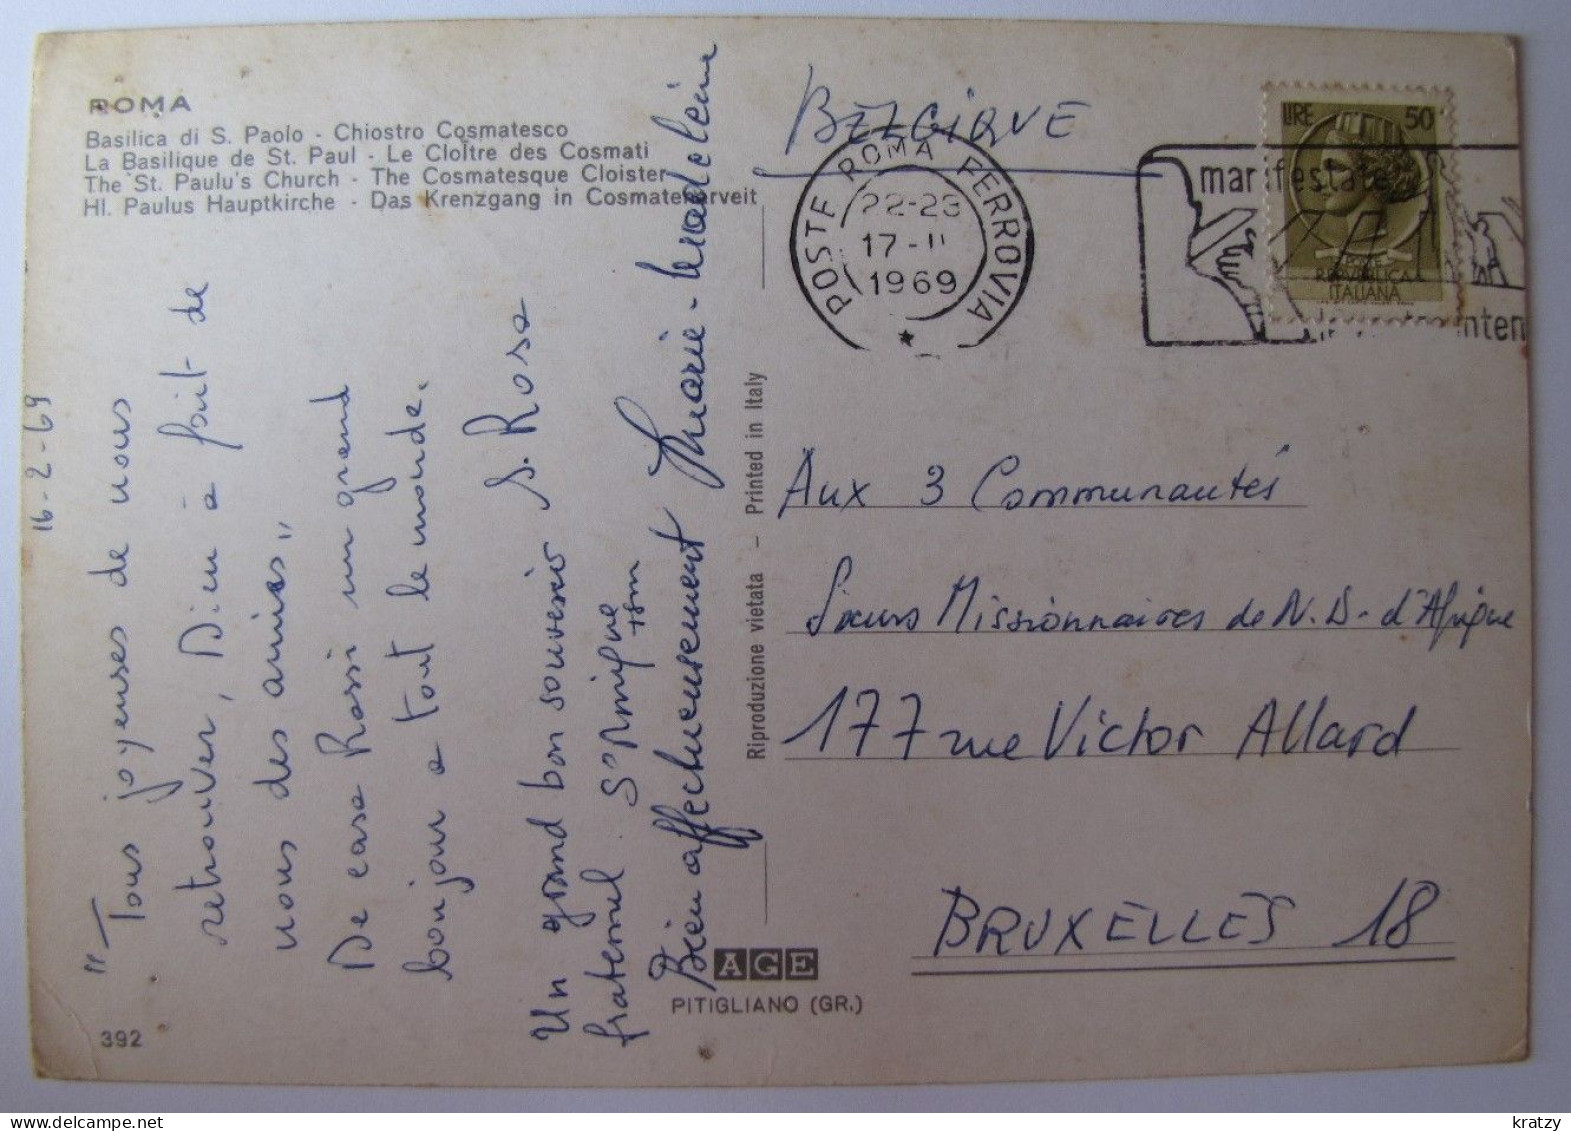 ROMA
Basilica di S. Paolo - Chiostro Cosmatesco
La Basilique de St. Paul - Le Cloître des Cosmati
The St. Paulu's Church - The Cosmatesque Cloister
Hl. Paulus Hauptkirche - Das Krenzgang in Cosmatenerveit
16-2-69
"Tous joyeuses de nous
retrouver, Dieu a fait de
nous des amies"
De casa Rossi un grand
bonjour a tout le monde.
S. Rosa
Un grand bon souvenir
fraternel. Sr
Bien affectueusement Marie-Madeleine
Riproduzione vietata - Printed in Italy
AGE
PITIGLIANO (GR.)
392
BELGIQUE
POSTE ROMA FERROVIA
22-23
17-II
1969
LIRE 50
POSTE
REPVBBLICA
ITALIANA
Aux 3 Communautés
Soeurs Missionnaires de N.D. d'Afrique
177 rue Victor Allard
BRUXELLES 18
kratzy